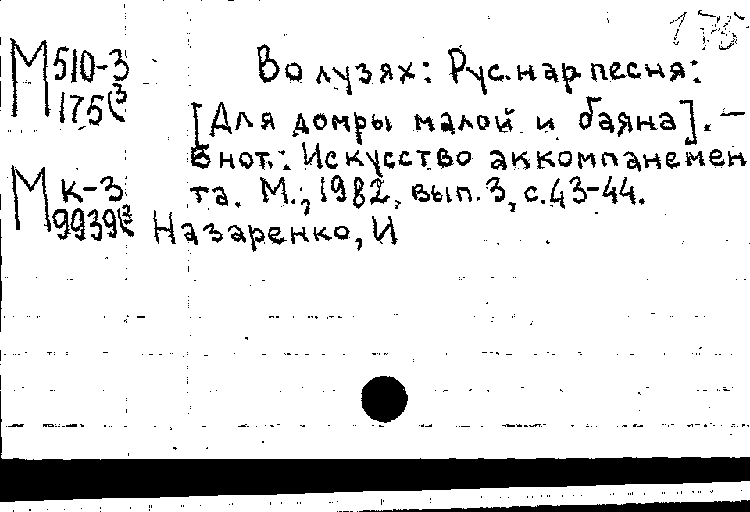 175
М 510-3
175(3
Во лузях: Рус. нар. песня:
[Для домры малой и баяна]. —
В нот.: Искусство аккомпанемен
та. М., 1982, вып. 3, с. 43-44.
М к-3
9939(3
Назаренко, И